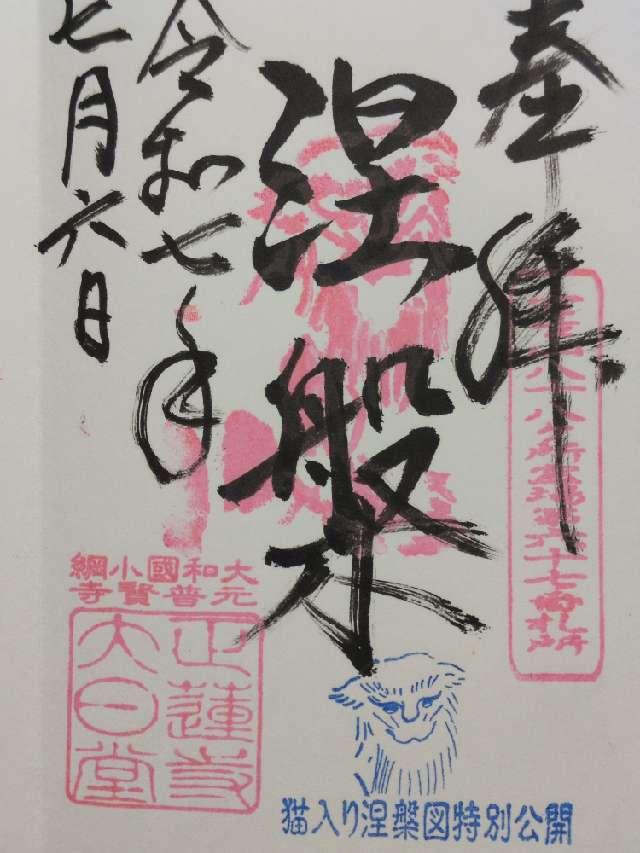 奉拝
八十八ヶ所霊場第六十七番札所
涅槃
令和七年
七月六日
大和國小綱
元普賢寺
正蓮寺
大日堂
猫入り涅槃図特別公開